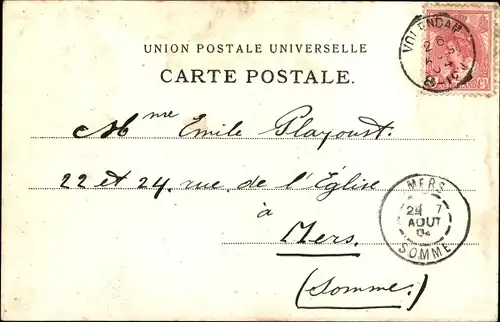 VOLENDAM
UNION POSTALE UNIVERSELLE
CARTE POSTALE.
Mme Emile Playoust
22 et 24, rue de l'Église
à
Mers.
(Somme.)
MERS
7
AOUT
04
SOMME